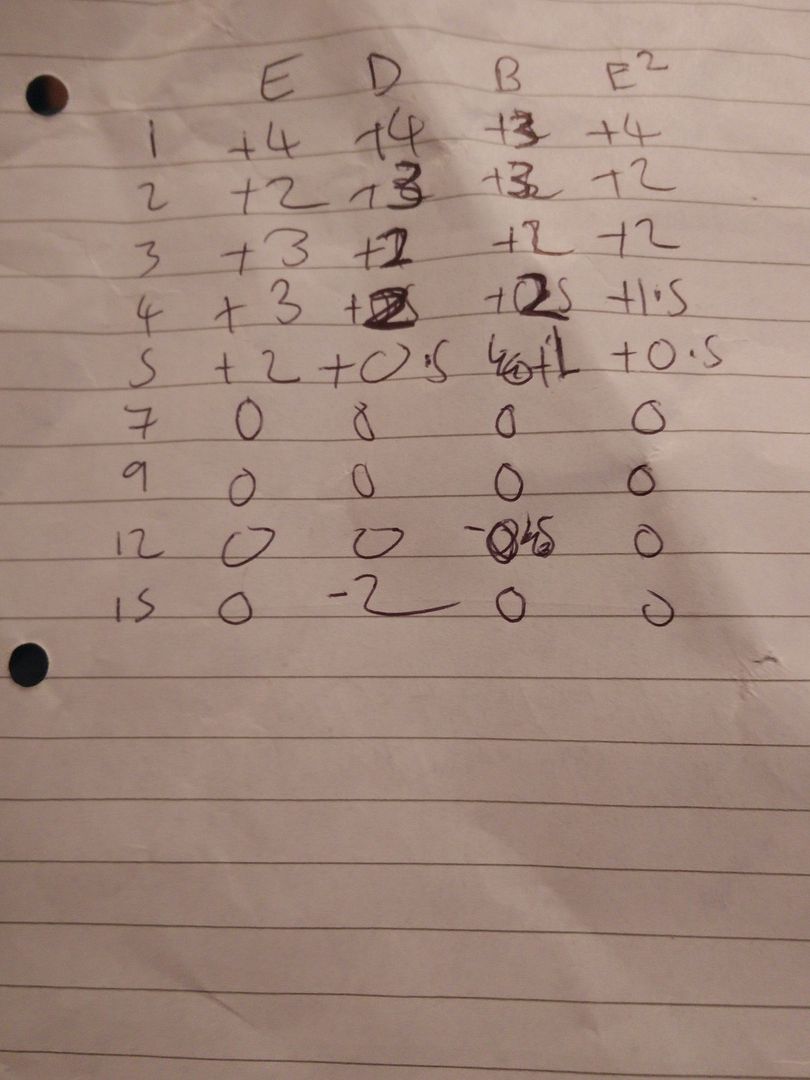 E D B E²
1 +4 +4 +3 +4
2 +2 +3 +2
3 +3 +2 +2
4 +3 +1.5
5 +2 +0.5 +1 +0.5
7 0 0 0 0
9 0 0 0 0
12 0 0 0
15 0 -2 0 0